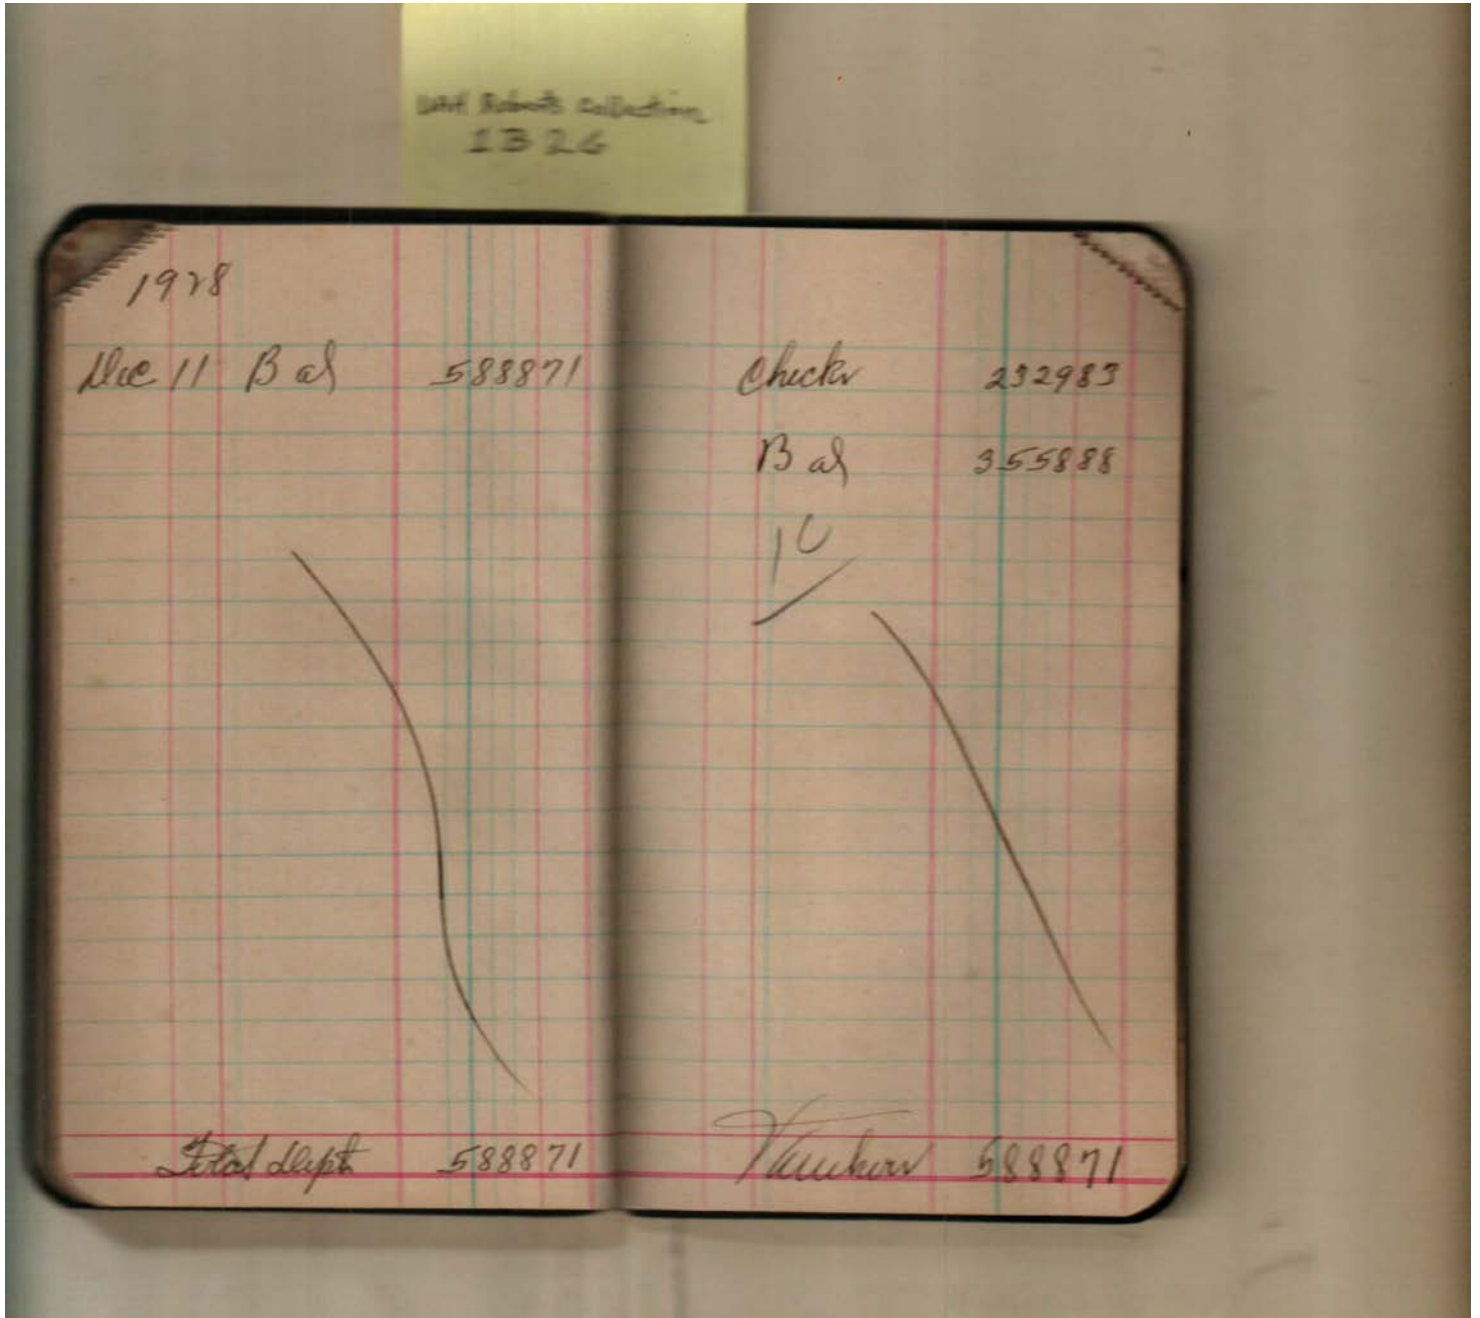 UAH Roberts Collection
1B26
1928
Dec 11 Bal 588871
Total Depts 588871
Checks 232983
Bal 355888
10
588871